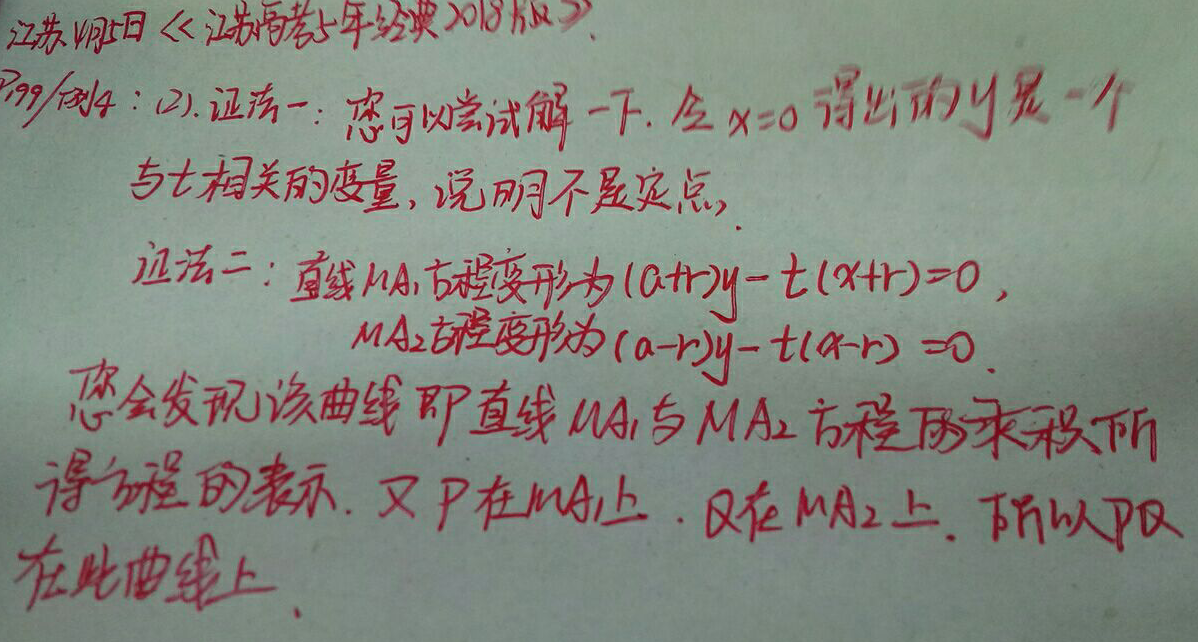 江苏4月5日《江苏高考5年经典2018版》.
P199/例4：(2). 证法一：您可以尝试解一下. 令x=0得出的y是一个
与t相关的变量, 说明不是定点.
证法二：直线MA₁方程变形为(a+r)y-t(x+r)=0,
MA₂方程变形为(a-r)y-t(x-r)=0.
您会发现该曲线即直线MA₁与MA₂方程的乘积所
得方程的表示. 又P在MA₁上. Q在MA₂上. 所以PQ
在此曲线上.